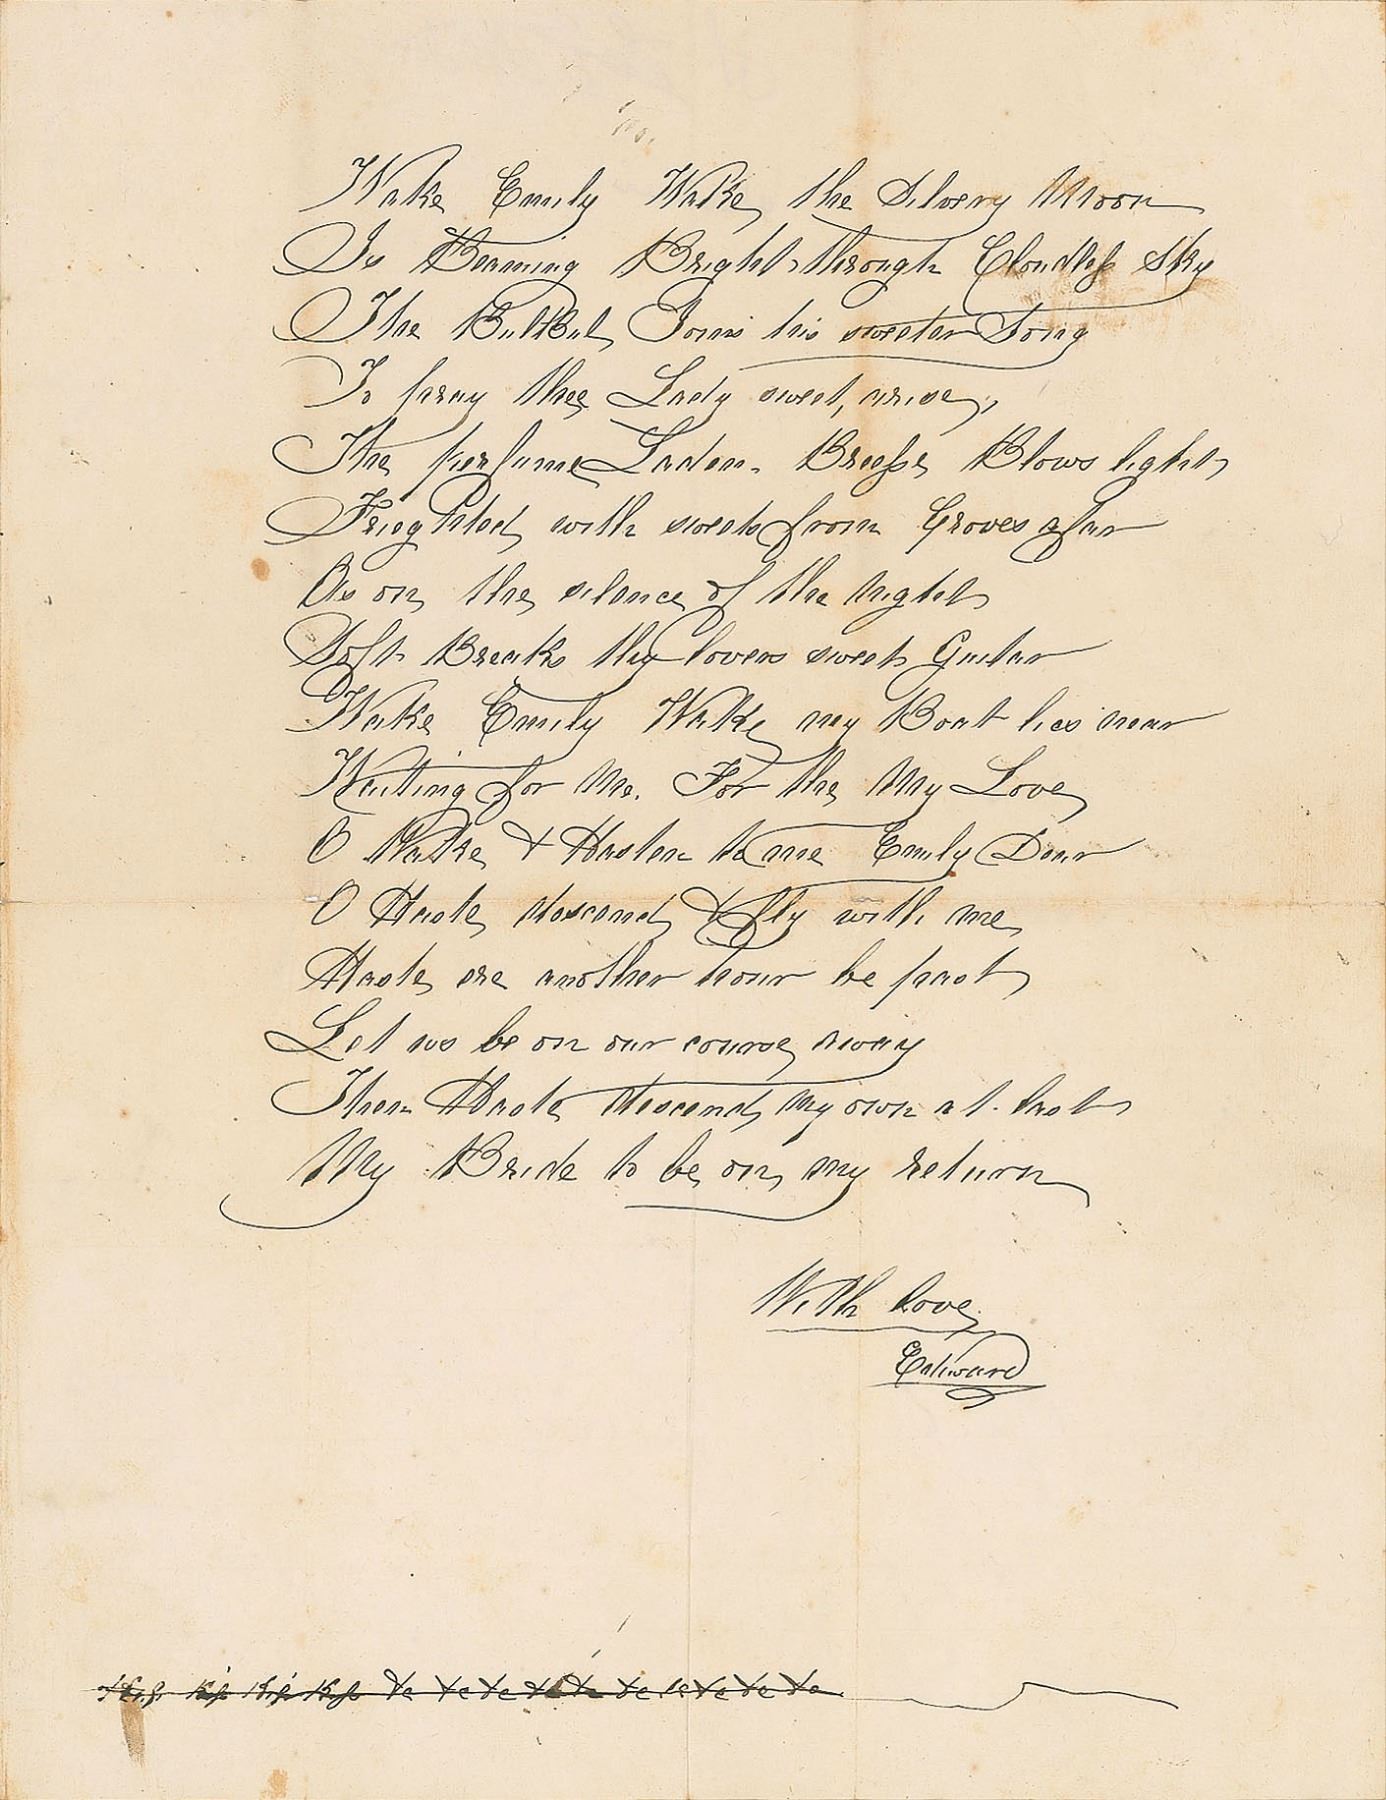 Wake Emily Wake, the Silvery Moon
Is Beaming Bright through Cloudless Sky
The BulBul Joins his sweeter Song
To pray thee Lady sweet, arise,
The perfume Laden Breese Blows light
Frieghted with sweets from Groves afar
As on the silence of the Night
Soft Breaks thy lovers sweet Guitar
Wake Emily Wake my Boat lies near
Waiting for Me. For the My Love
O Wake & Hasten to me Emily Dear
O Haste descend & fly with me
Haste ere another hour be past
Let us be on our course away
Then Haste descend my own at last
My Bride to be on my return
With Love
Edward